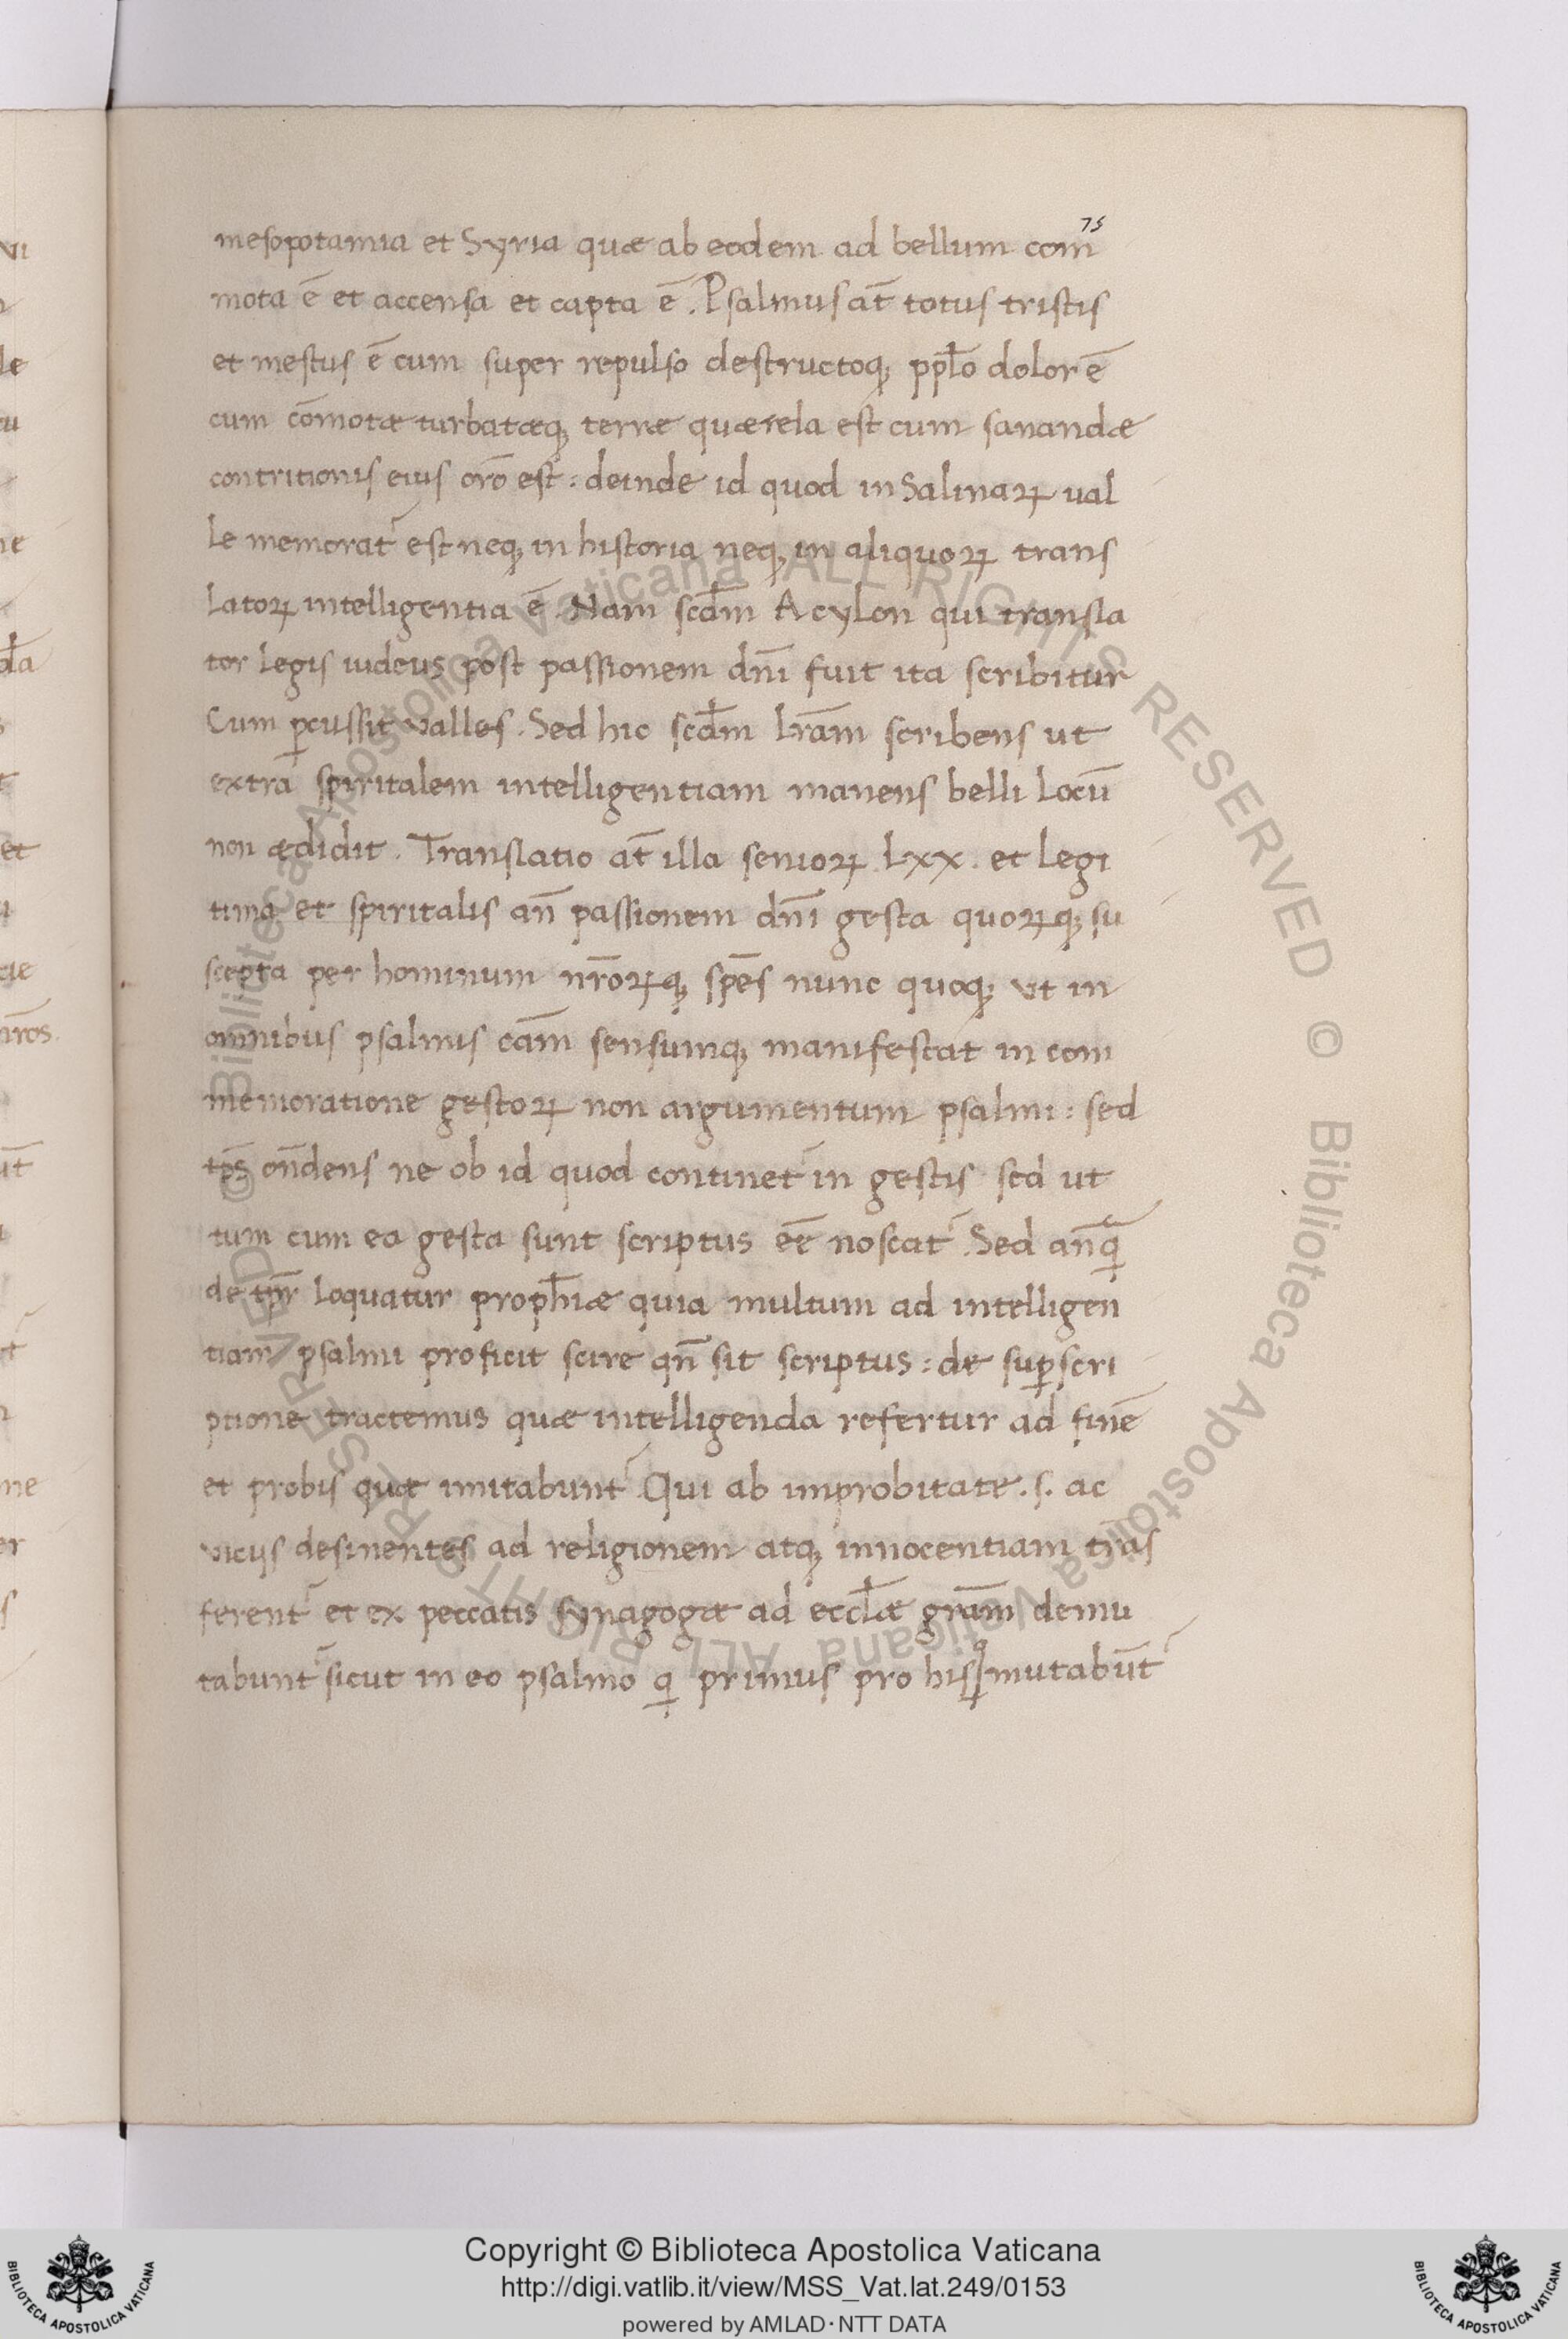 75
mesopotamia et Syria quæ ab eodem ad bellum com
mota ē et accensa et capta ē. Psalmus at̄ totus tristis
et mestus ē cum super repulso destructoq; pp̄lo dolor ē
cum cōmotæ turbatæq; terræ quærela est cum sanandæ
contritionis eius orō est: deinde id quod in Salinaꝝ ual
le memorat᷒ est neq; in historia neq; in aliquoꝝ trans
latoꝝ intelligentia ē. Nam scđm Acylon qui transla
tor legis iudeus post passionem dn̄i fuit ita scribitur
Cum ꝑcussit valles. Sed hic scđm lr̄am scribens ut
extra spiritalem intelligentiam manens belli locū
non ædidit. Translatio at̄ illa senioꝝ LXX. et legi
tima et spiritalis an̄ passionem dn̄i gesta quoꝝq; su
scepta per hominum nr̄oꝝq; sp̄es nunc quoq; ut in
omnibus psalmis cām sensumq; manifestat in com
memoratione gestoꝝ non argumentum psalmi: sed
tp̄s on̄dens ne ob id quod continet᷒ in gestis sed ut
tum cum ea gesta sunt scriptus eē noscat᷒. Sed an̄q̄
de tpr̄ loquatur proph̄iæ quia multum ad intelligen
tiam psalmi proficit scire qn̄ sit scriptus: de suꝑscri
ptione tractemus quæ intelligenda refertur ad finē
et probis quæ imitabunt᷒. Qui ab improbitate .s. ac
vicijs desinentes ad religionem atq; innocentiam trās
ferent᷒ et ex peccatis synagogæ ad eccl̄æ gr̄am demu
tabunt᷒ sicut in eo psalmo q̣ primus pro his q̣ mutabūt᷒
vi
le
ne
đla
et
nr̄os.
ne
© Biblioteca Apostolica Vaticana ALL RIGHTS RESERVED © Biblioteca Apostolica Vaticana ALL RIGHTS RESERVED
Copyright © Biblioteca Apostolica Vaticana
http://digi.vatlib.it/view/MSS_Vat.lat.249/0153
powered by AMLAD·NTT DATA
BIBLIOTECA APOSTOLICA VATICANA
BIBLIOTECA APOSTOLICA VATICANA